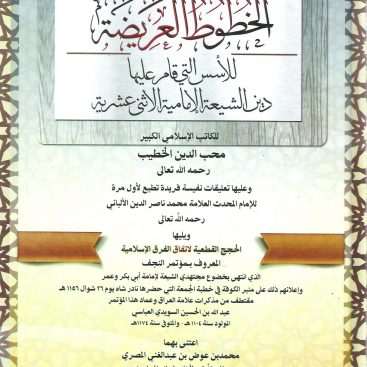 الخطوط العريضة
للأسس التي قام عليها
دين الشيعة الإمامية الاثنى عشرية
للكاتب الإسلامي الكبير
محب الدين الخطيب
رحمه الله تعالى
وعليها تعليقات نفيسة فريدة تطبع لأول مرة
للإمام المحدث العلامة محمد ناصر الدين الألباني
رحمه الله تعالى
ويليها
الحجج القطعية لاتفاق الفرق الإسلامية
المعروف بمؤتمر النجف
الذي انتهى بخضوع مجتهدي الشيعة لإمامة أبي بكر وعمر
وإعلانهم ذلك على منبر الكوفة في خطبة الجمعة التي حضرها نادر شاه يوم ٢٦ شوال ١١٥٦ هـ
مقتطف من مذكرات علامة العراق وعماد هذا المؤتمر
عبد الله بن الحسين السويدي العباسي
المولود سنة ١١٠٤ هـ - والمتوفى سنة ١١٧٤ هـ
اعتنى بهما
محمد بن عوض بن عبد الغني المصري